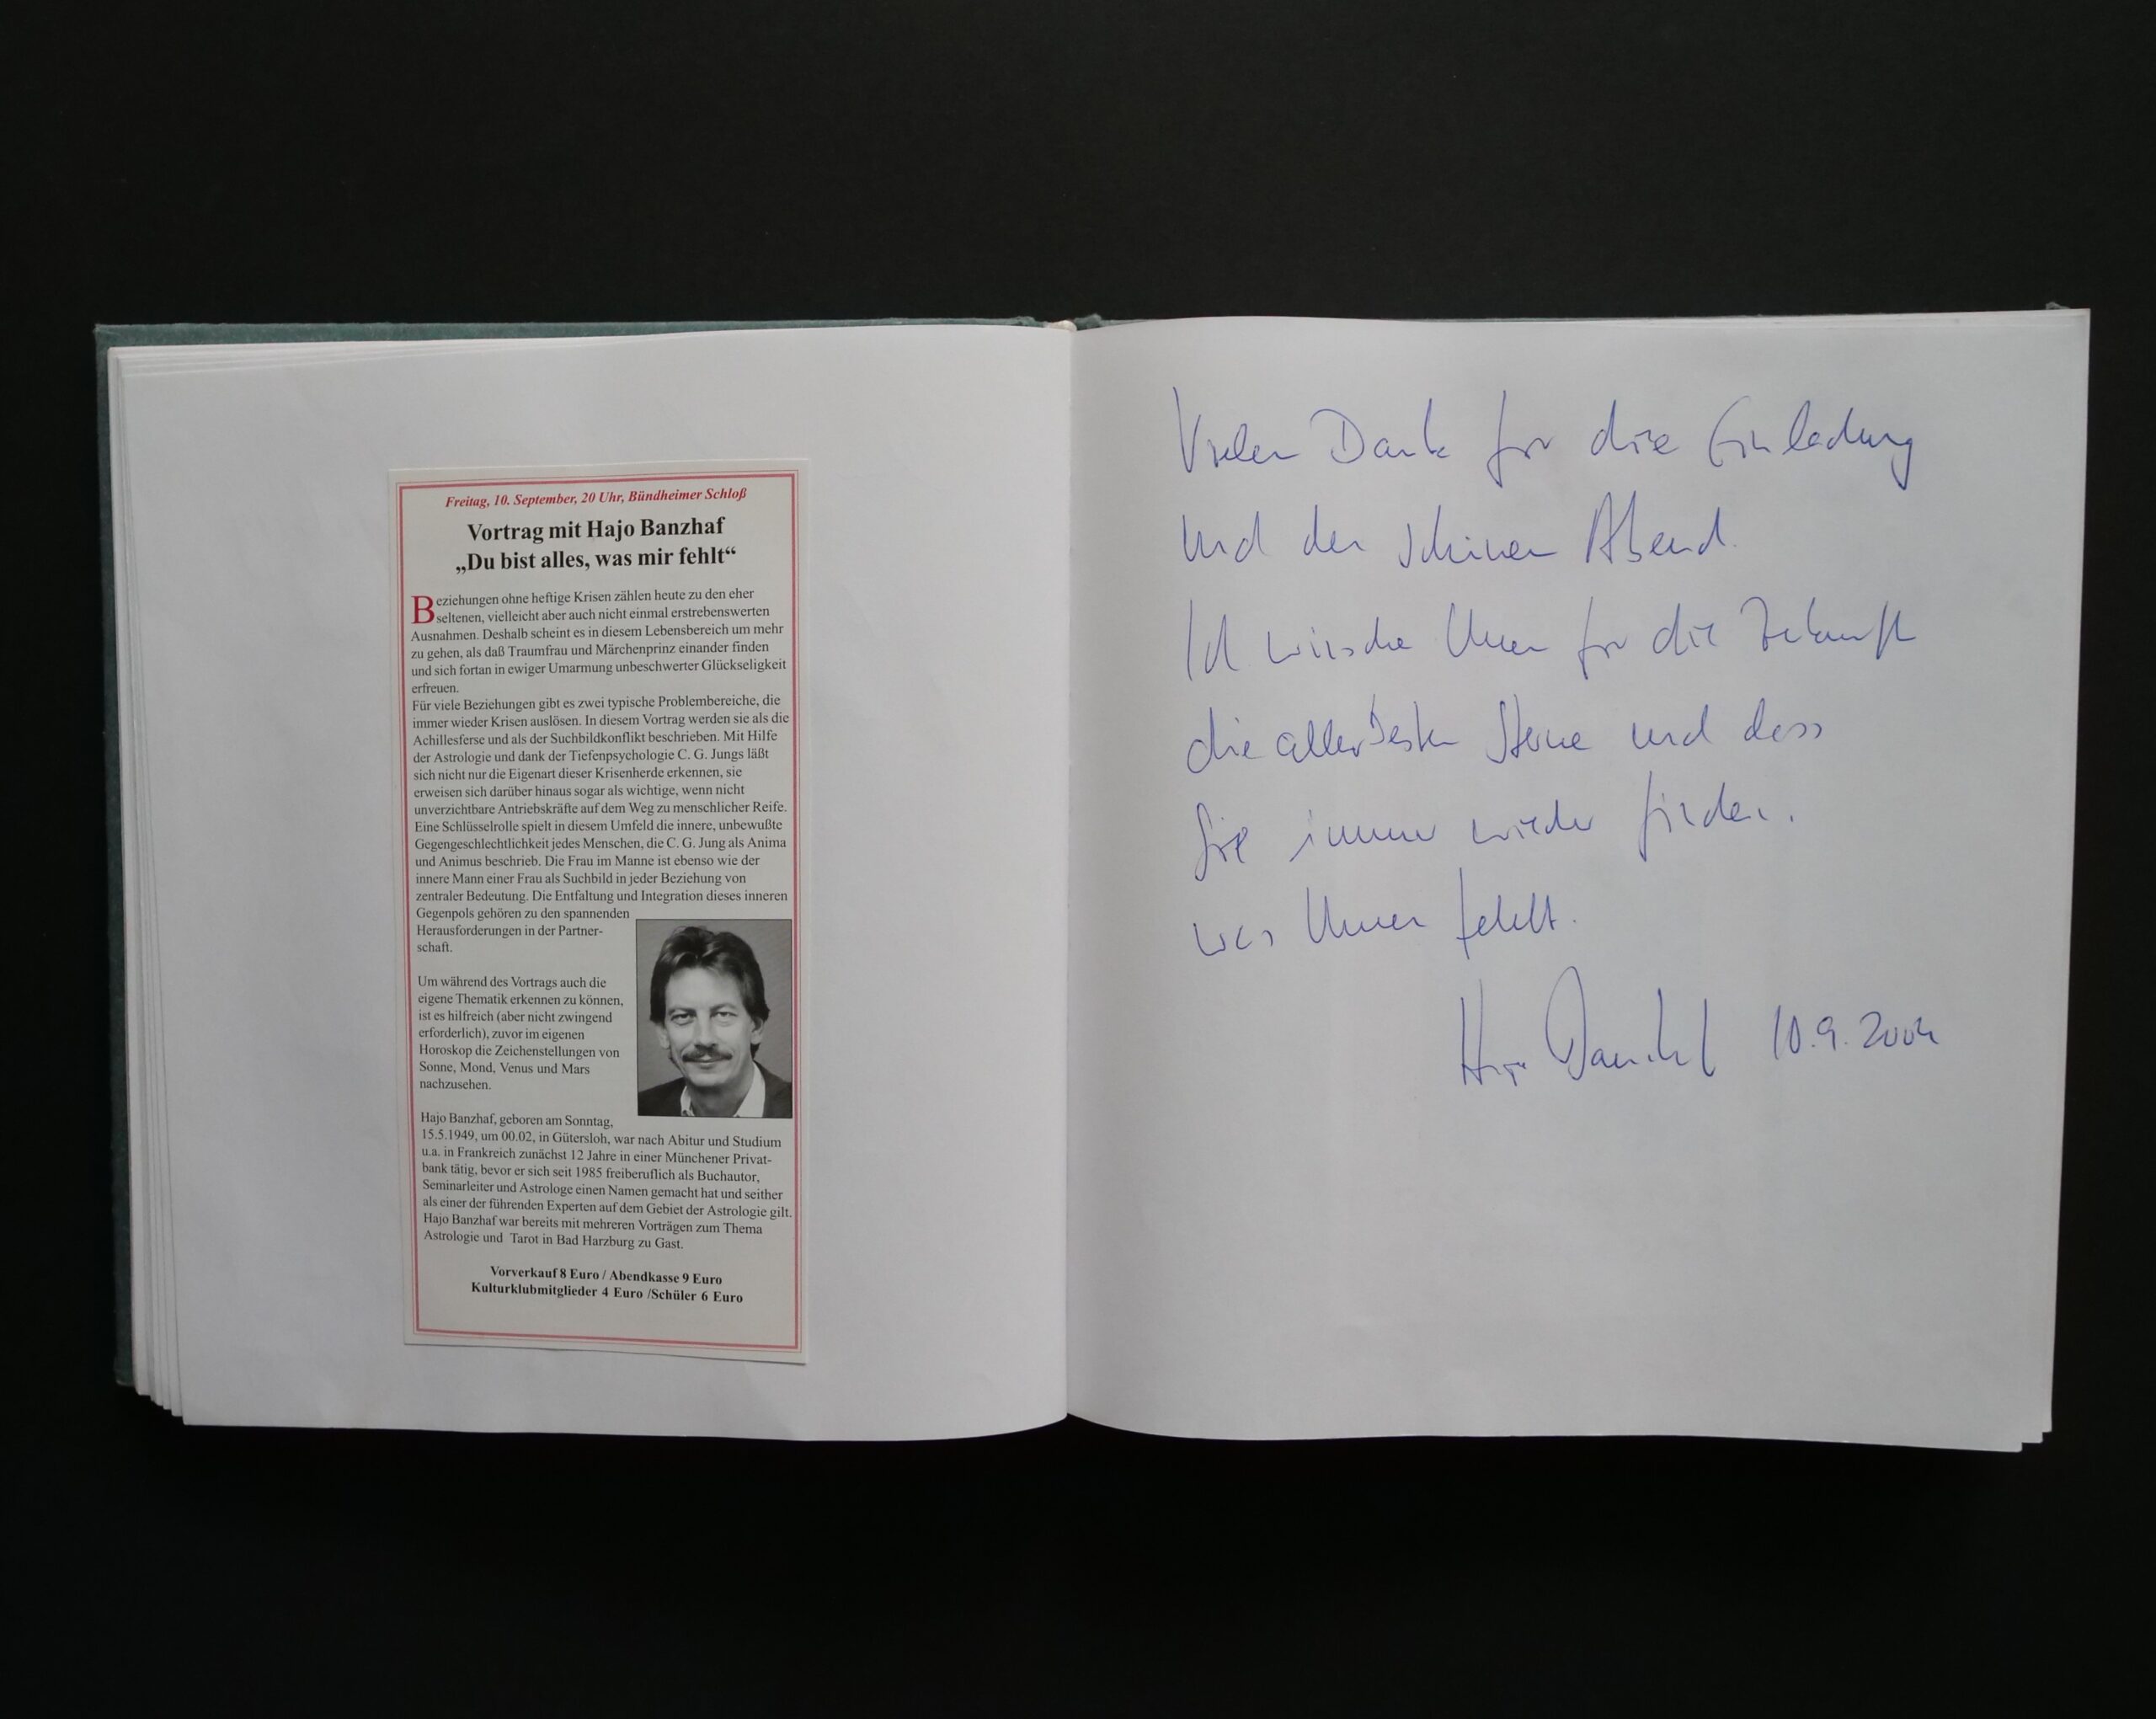 Freitag, 10. September, 20 Uhr, Bündheimer Schloß
Vortrag mit Hajo Banzhaf
„Du bist alles, was mir fehlt“
Beziehungen ohne heftige Krisen zählen heute zu den eher
seltenen, vielleicht aber auch nicht einmal erstrebenswerten
Ausnahmen. Deshalb scheint es in diesem Lebensbereich um mehr
zu gehen, als daß Traumfrau und Märchenprinz einander finden
und sich fortan in ewiger Umarmung unbeschwerter Glückseligkeit
erfreuen.
Für viele Beziehungen gibt es zwei typische Problembereiche, die
immer wieder Krisen auslösen. In diesem Vortrag werden sie als die
Achillesferse und als der Suchbildkonflikt beschrieben. Mit Hilfe
der Astrologie und dank der Tiefenpsychologie C. G. Jungs läßt
sich nicht nur die Eigenart dieser Krisenherde erkennen, sie
erweisen sich darüber hinaus sogar als wichtige, wenn nicht
unverzichtbare Antriebskräfte auf dem Weg zu menschlicher Reife.
Eine Schlüsselrolle spielt in diesem Umfeld die innere, unbewußte
Gegengeschlechtlichkeit jedes Menschen, die C. G. Jung als Anima
und Animus beschrieb. Die Frau im Manne ist ebenso wie der
innere Mann einer Frau als Suchbild in jeder Beziehung von
zentraler Bedeutung. Die Entfaltung und Integration dieses inneren
Gegenpols gehören zu den spannenden
Herausforderungen in der Partner-
schaft.
Um während des Vortrags auch die
eigene Thematik erkennen zu können,
ist es hilfreich (aber nicht zwingend
erforderlich), zuvor im eigenen
Horoskop die Zeichenstellungen von
Sonne, Mond, Venus und Mars
nachzusehen.
Hajo Banzhaf, geboren am Sonntag,
15.5.1949, um 00.02, in Gütersloh, war nach Abitur und Studium
u.a. in Frankreich zunächst 12 Jahre in einer Münchener Privat-
bank tätig, bevor er sich seit 1985 freiberuflich als Buchautor,
Seminarleiter und Astrologe einen Namen gemacht hat und seither
als einer der führenden Experten auf dem Gebiet der Astrologie gilt.
Hajo Banzhaf war bereits mit mehreren Vorträgen zum Thema
Astrologie und Tarot in Bad Harzburg zu Gast.
Vorverkauf 8 Euro / Abendkasse 9 Euro
Kulturklubmitglieder 4 Euro /Schüler 6 Euro
Vielen Dank für die Einladung
und den schönen Abend.
Ich wünsche Ihnen für die Zukunft
die allerbesten Sterne und dass
Sie immer wieder finden.
was Ihnen fehlt.
Hajo Banzhaf 10.9.2004